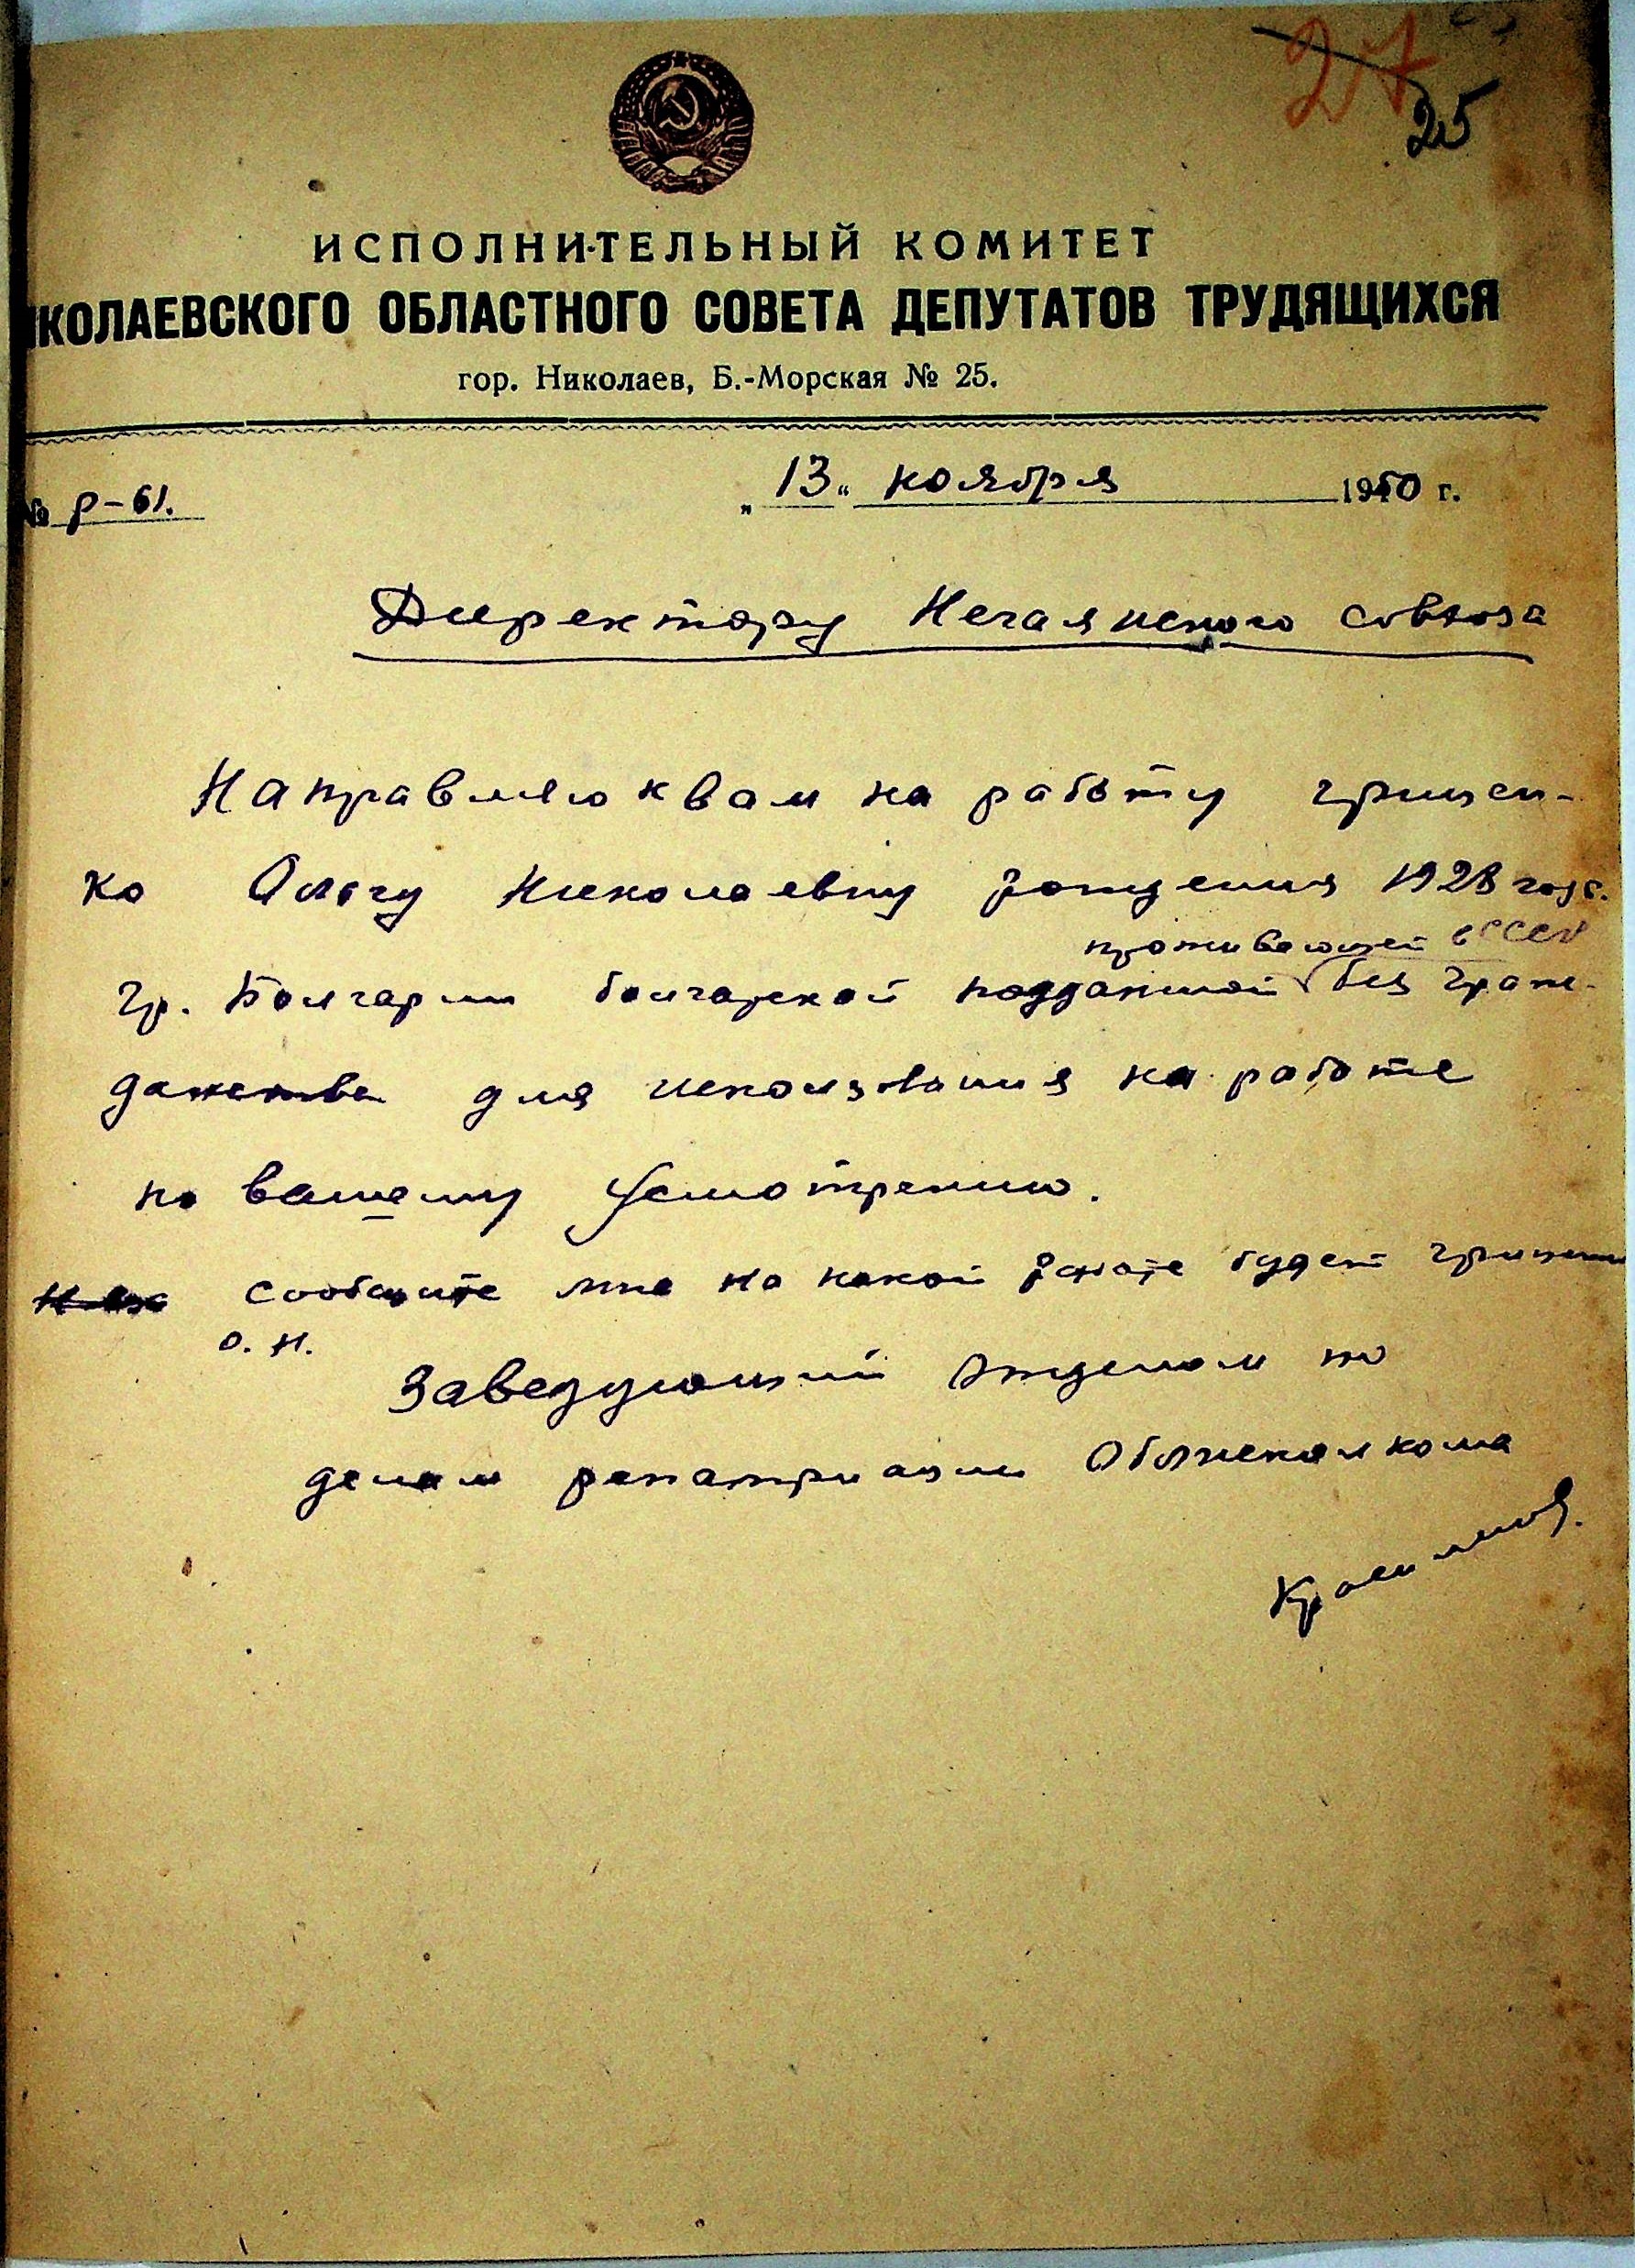 27
25
ИСПОЛНИТЕЛЬНЫЙ КОМИТЕТ
ИКОЛАЕВСКОГО ОБЛАСТНОГО СОВЕТА ДЕПУТАТОВ ТРУДЯЩИХСЯ
гор. Николаев, Б.-Морская № 25.
№ Р-61. „13" ноября 1950 г.
Директору Нечаянского совхоза
Направляю к вам на работу грицен-
ко Ольгу Николаевну рождения 1928 года.
проживающей в СССР
гр. Болгарии болгарской подданной без граж-
данства для использования на работе
по вашему усмотрению.
сообщите мне на какой работе будет гриценко
О. Н.
Заведующий отделом по
делам репатриации Облисполкома